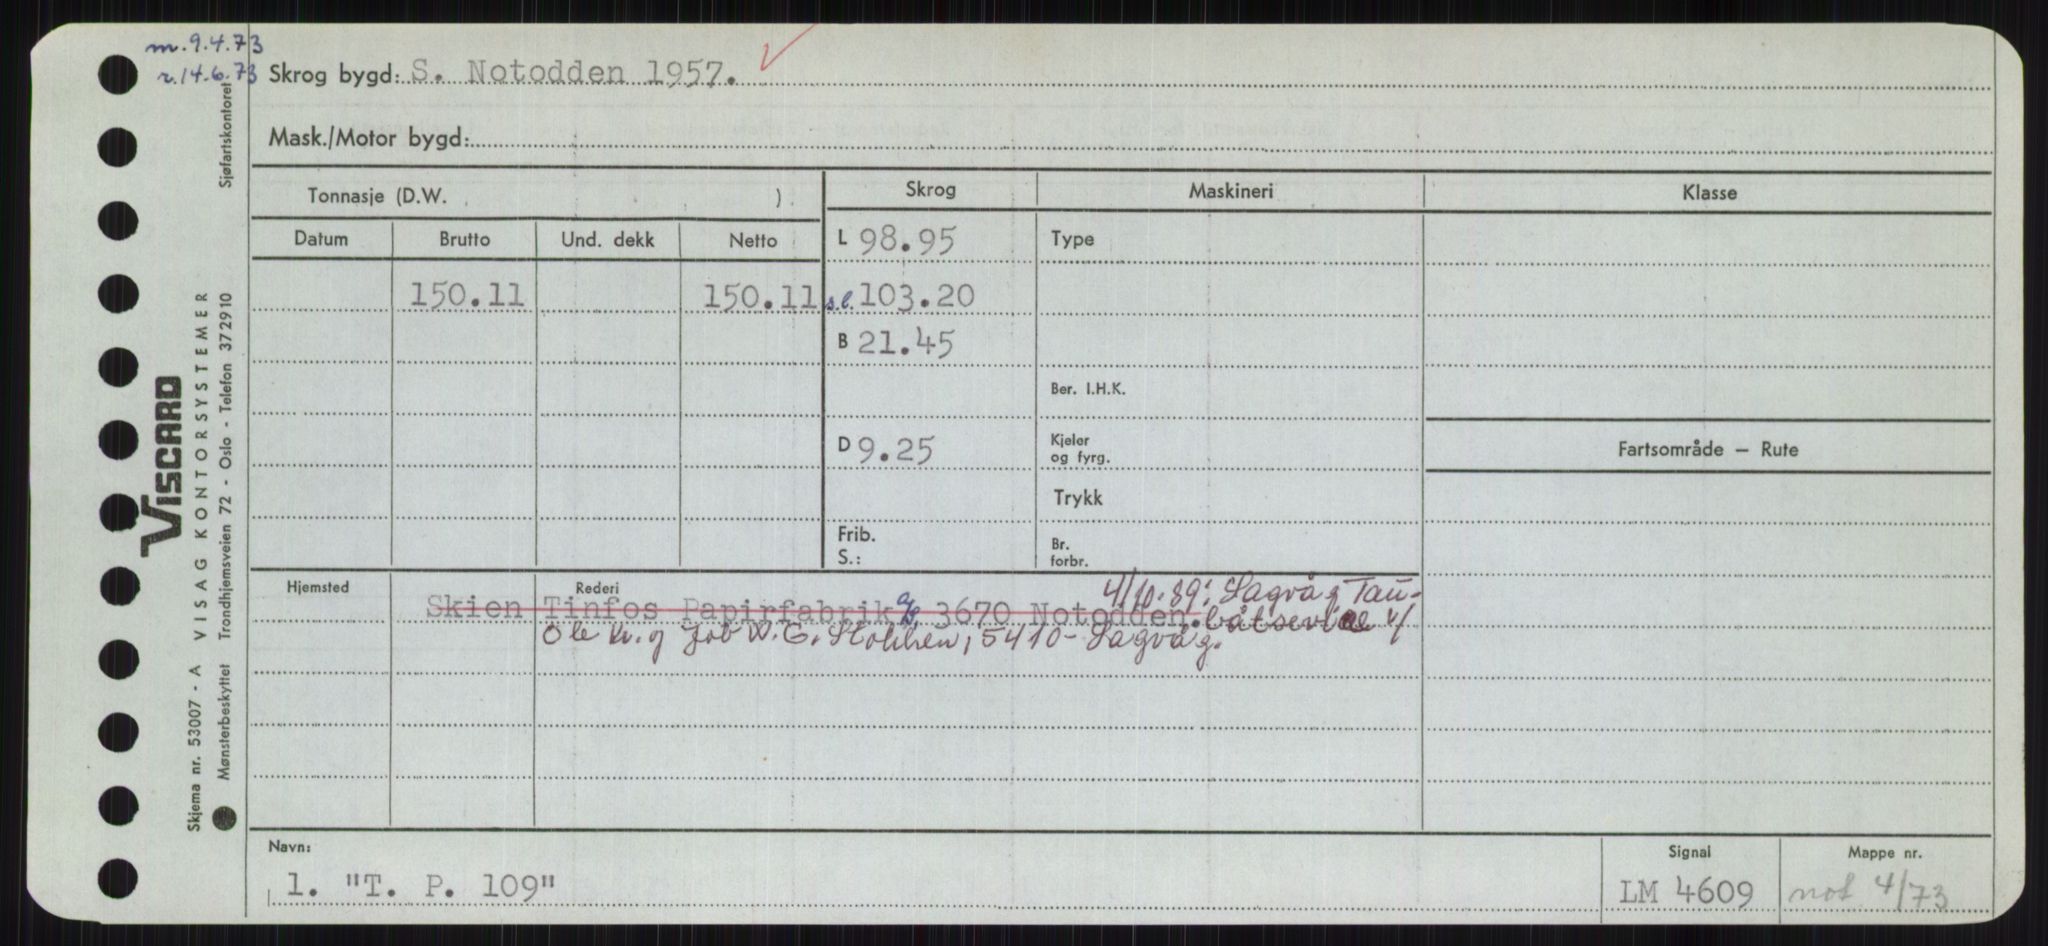 m.9.4.73
r.14.6.73
Skrog bygd: S. Notodden 1957.
Mask./Motor bygd:
Tonnasje (D.W. )
Skrog
Maskineri
Klasse
Datum
Brutto
Und. dekk
Netto
L 98.95
Type
150.11
150.11
s.l. 103.20
B 21.45
Ber. I.H.K.
D 9.25
Kjeler
og fyrg.
Fartsområde — Rute
Trykk
Frib.
S.:
Br.
forbr.
Hjemsted
Rederi
4/10.89: Sagvåg Tau-
Skien Tinfos Papirfabrik a/s, 3670 Notodden.
båtservice v/
Ole Kr. og Job W. G. Stokken, 5410 - Sagvåg.
Navn:
1. "T. P. 109"
Signal
LM 4609
Mappe nr.
not 4/73
Skjema nr. 53007 - A VISAG KONTORSYSTEMER
VISCARD
Mønsterbeskyttet Trondhjemsveien 72 - Oslo - Telefon 372910
Sjøfartskontoret